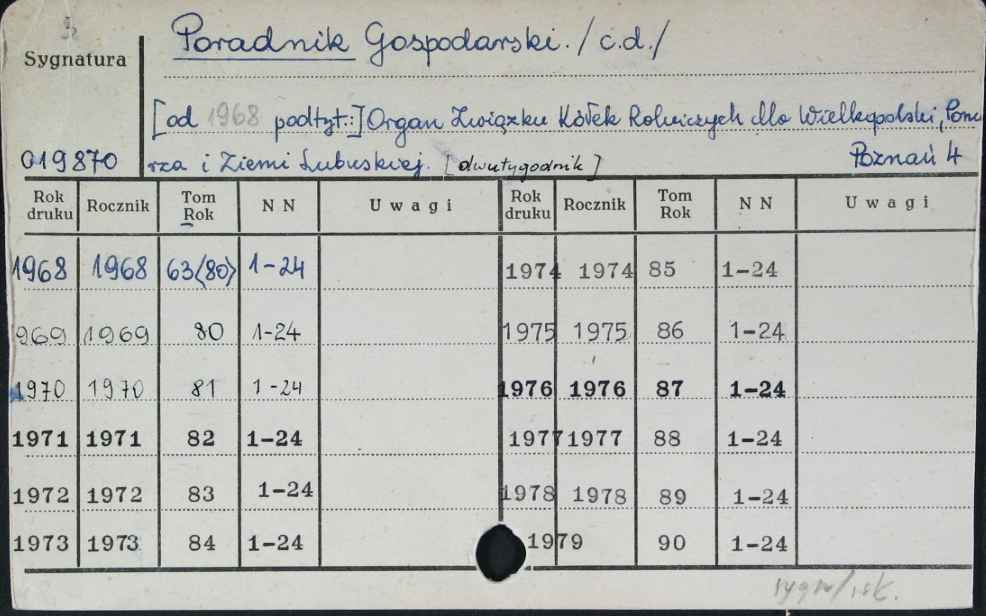 Poradnik Gospodarski. /c.d./
Sygnatura
[od 1968 podtyt:] Organ Związku Kółek Rolniczych dla Wielkopolski, Pomo
019870 rza i Ziemi Lubuskiej. [dwutygodnik] Poznań 4
Rok druku Rocznik Tom Rok N N Uwagi Rok druku Rocznik Tom Rok N N Uwagi
1968 1968 63(80) 1-24 1974 1974 85 1-24
969 1969 80 1-24 1975 1975 86 1-24
1970 1970 81 1-24 1976 1976 87 1-24
1971 1971 82 1-24 1977 1977 88 1-24
1972 1972 83 1-24 1978 1978 89 1-24
1973 1973 84 1-24 1979 90 1-24